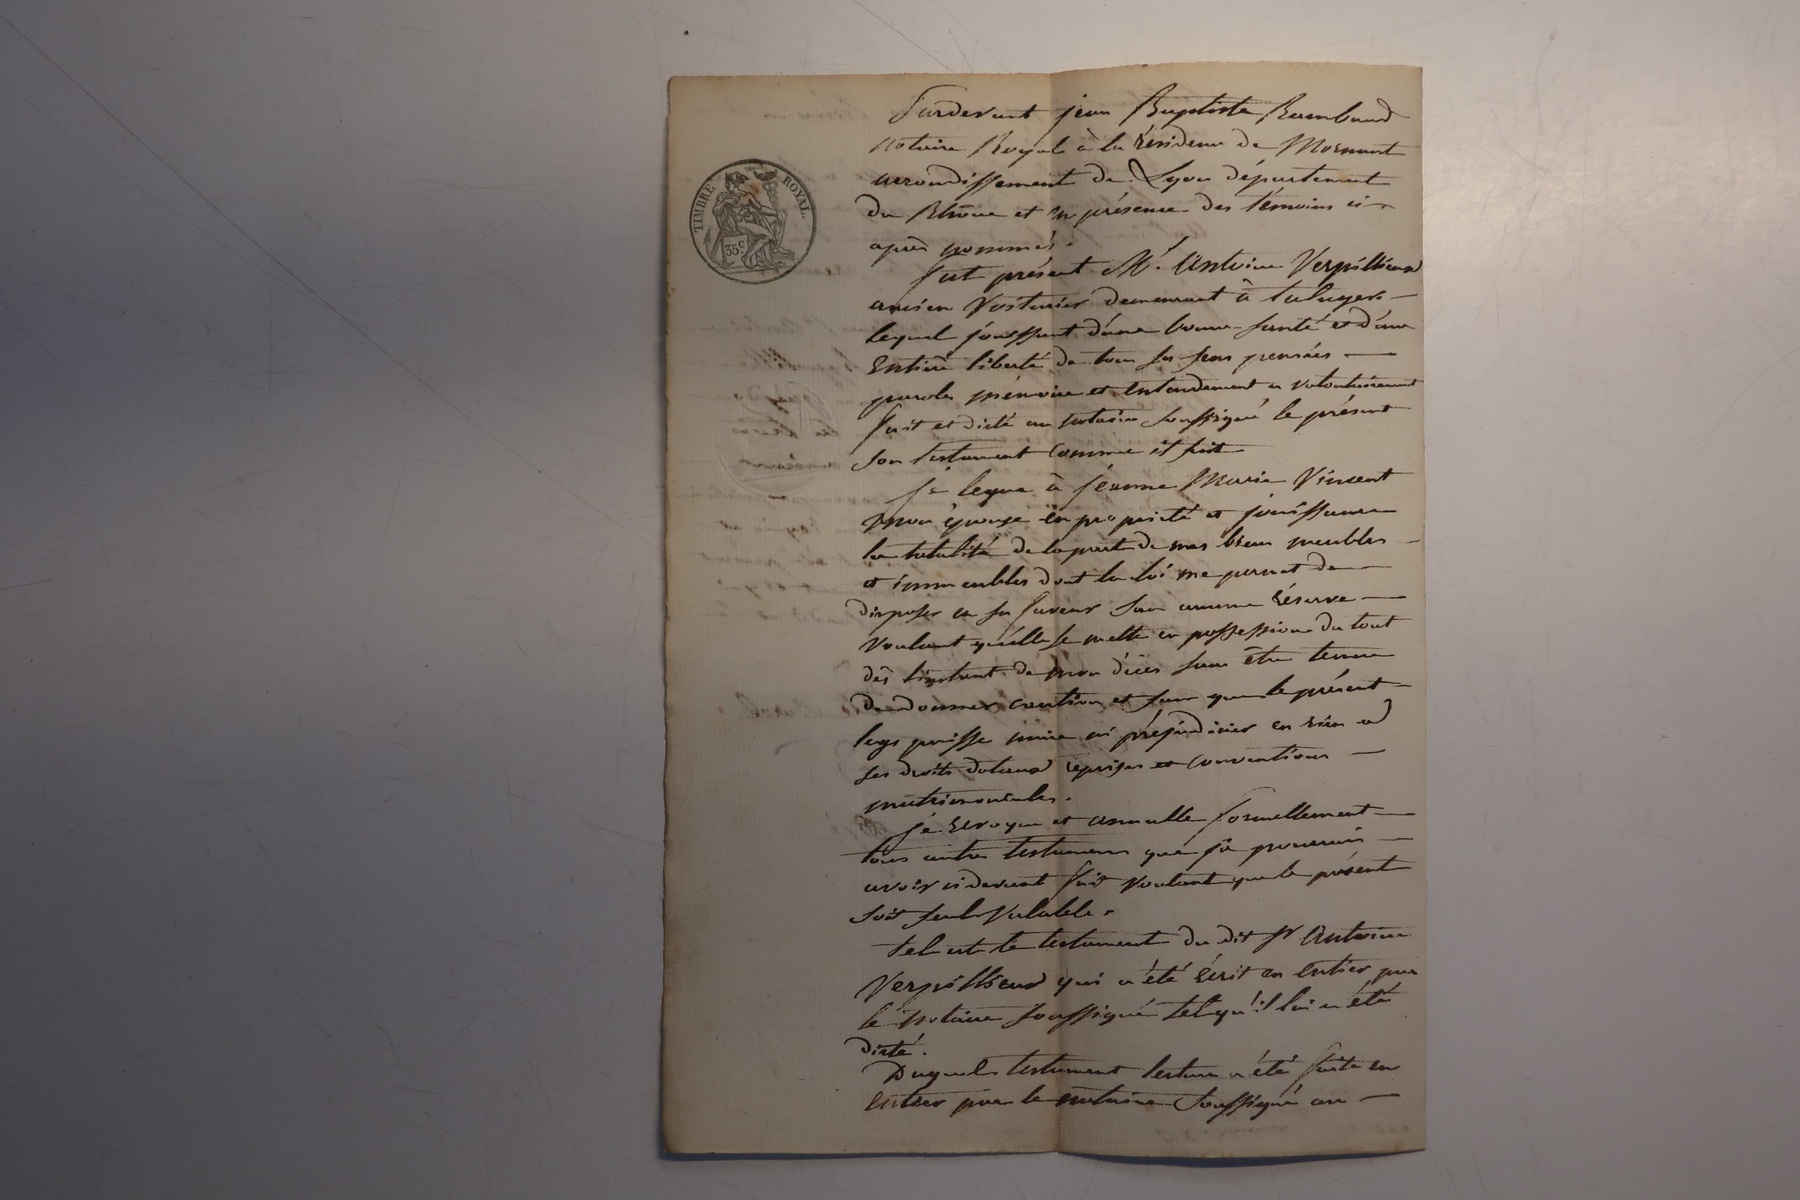 TIMBRE ROYAL.
35 c
Pardevant jean Baptiste Rambaud
Notaire Royal à la résidence de Mornant
arrondissement de Lyon département
du Rhône et en présence des témoins ci-
après nommés.
fut présent Mr. Antoine Verpillieux
ancien Voiturier demeurant à taluyers
lequel jouissant d'une bonne santé et d'une
Entière liberté de tous ses sens pensées
parole mémoire et Entendement a volontairement
fait et dicté au notaire soussigné le présent
son testament comme il suit
je legue à jeanne Marie Vincent
mon épouse en propriété et jouissance
la totalité de la part de mes biens meubles
et immeubles dont la loi me permet de
disposer en sa faveur sans aucune réserve
Voulant qu'elle se mette en possession du tout
dès l'instant de mon décès sans être tenue
de donner caution et sans que le présent
legs puisse nuire ni préjudicier en rien a
ses droits dotaux reprises et conventions
matrimoniales.
je revoque et annulle formellement
tous autres testamens que je pourrais
avoir cidevant fait voulant que le présent
soit seul valable.
tel est le testament du dit Sr Antoine
Verpillieux qui a été écrit en entier par
le notaire soussigné tel qu'il lui a été
dicté.
Duquel testament lecture a été faite en
entier par le notaire soussigné au